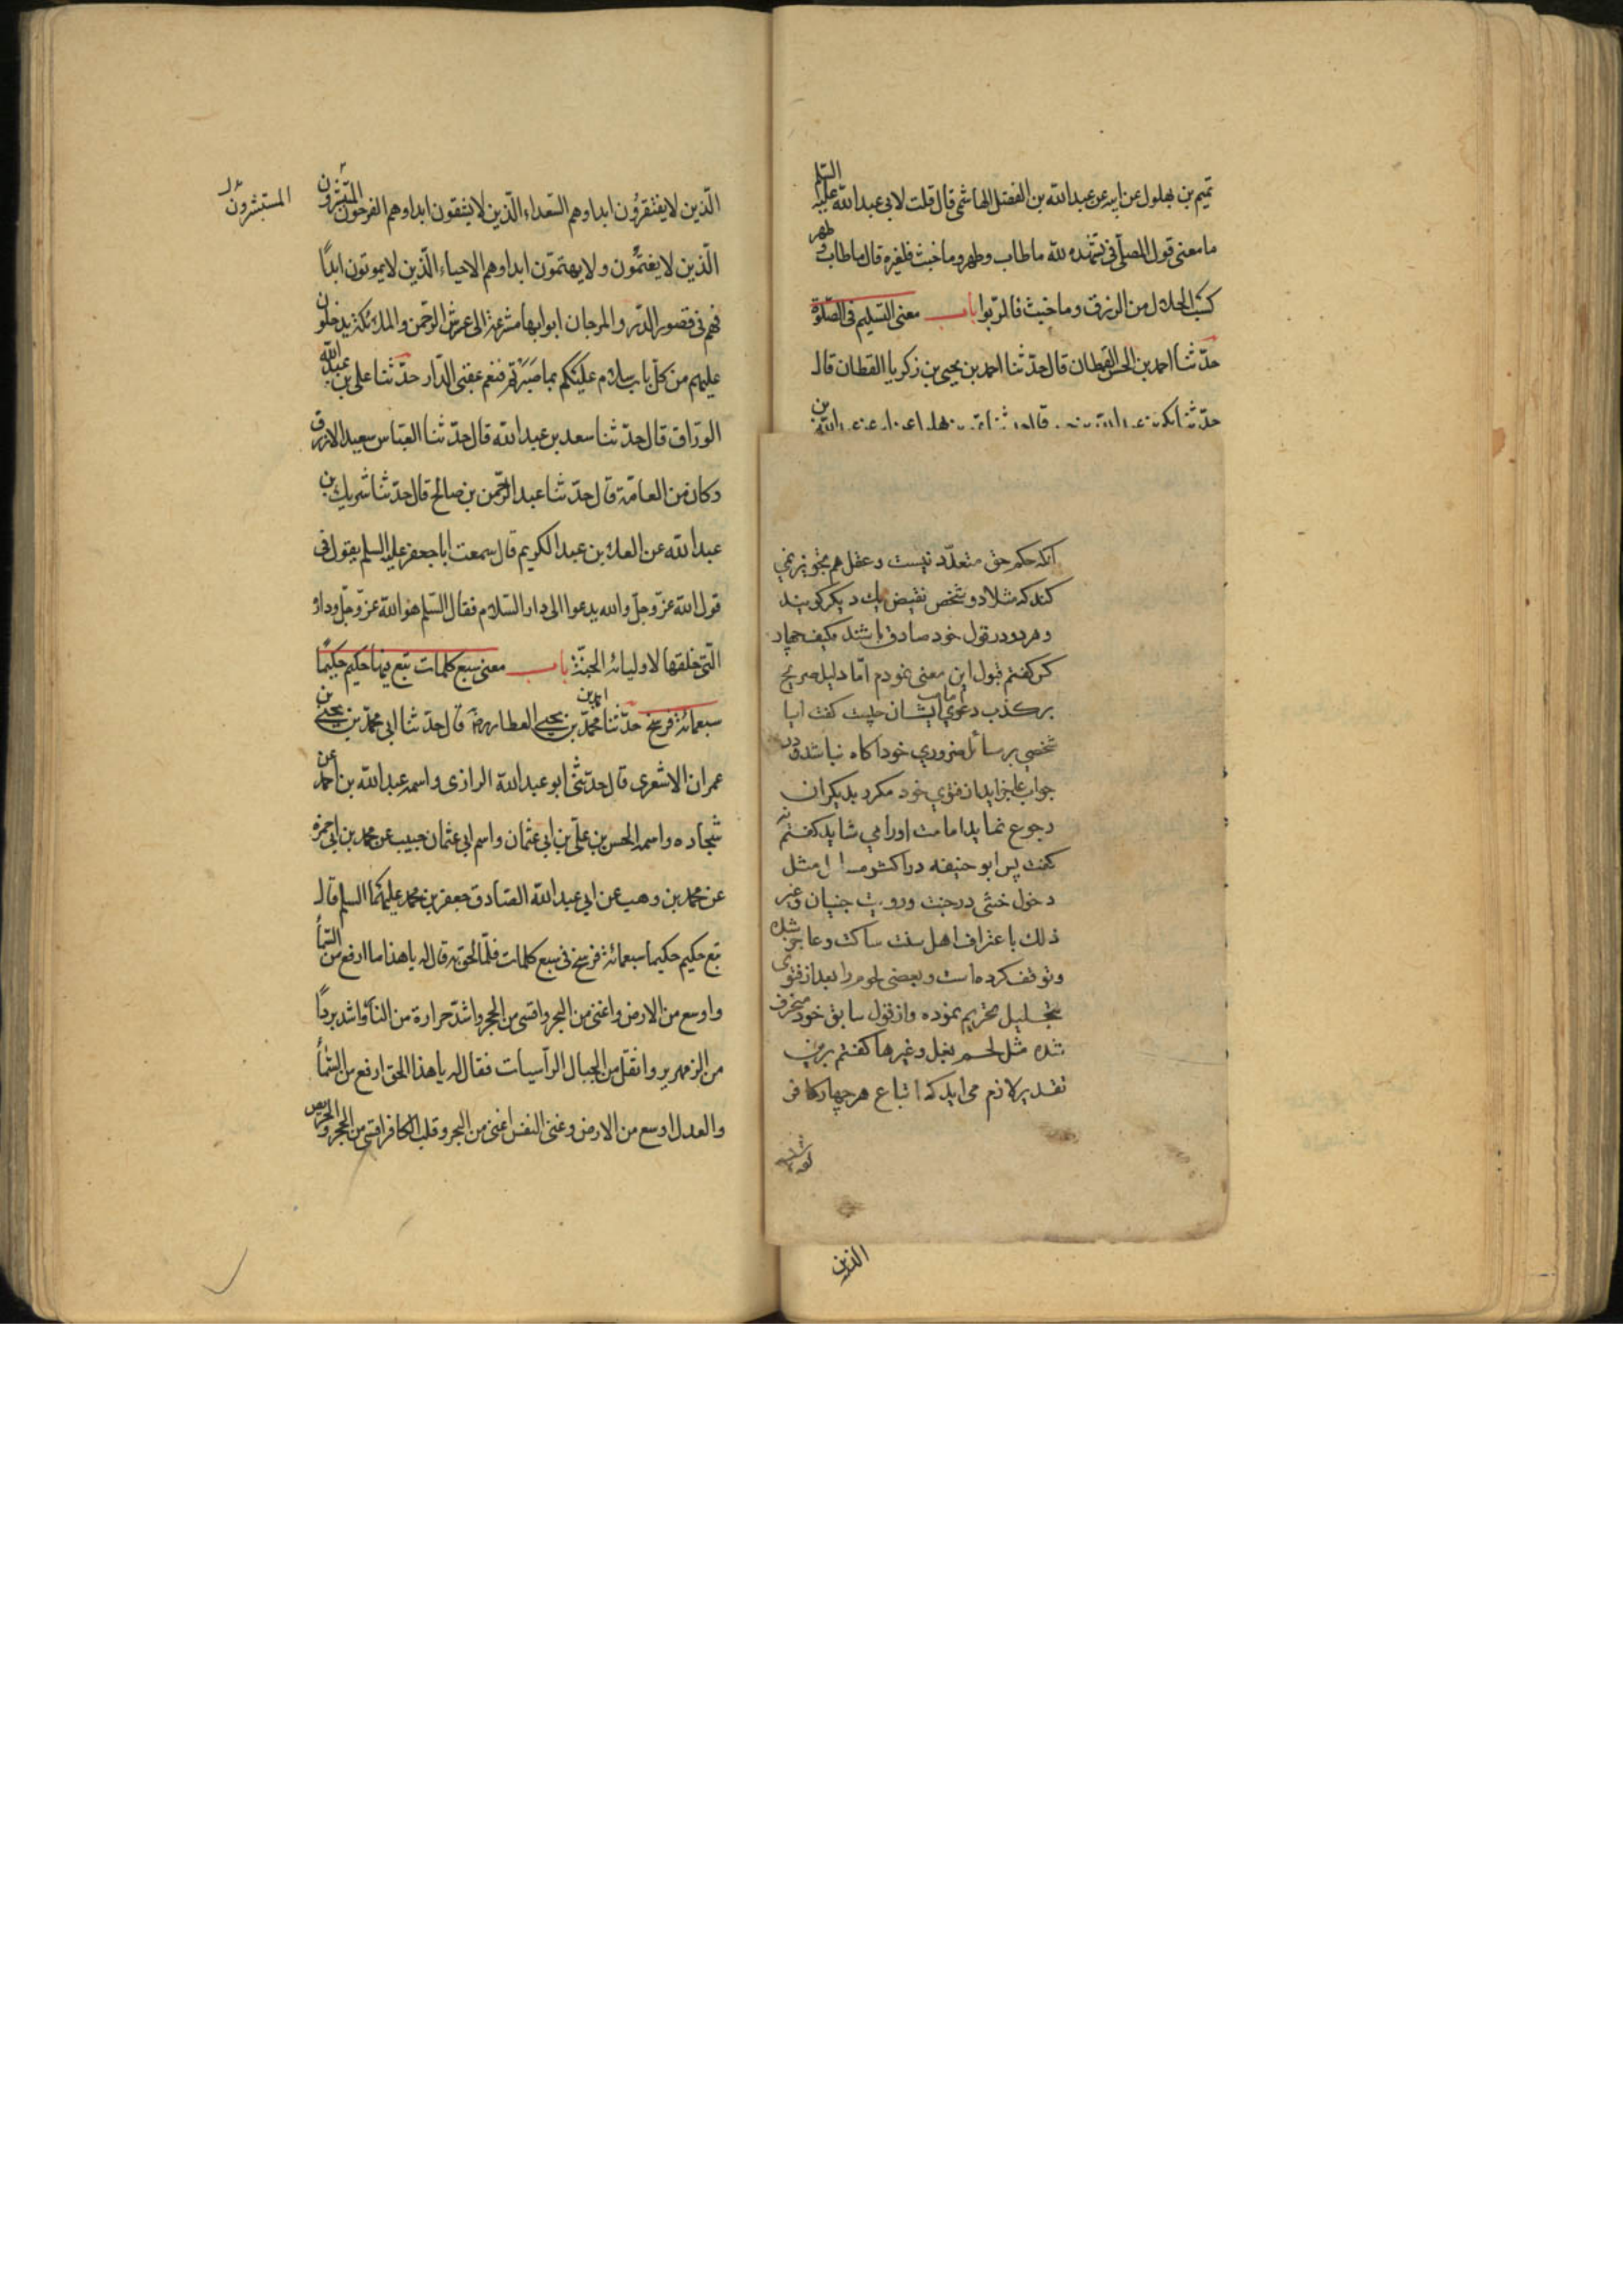 تميم بن بهلول عن ابيه عن عبد الله بن الفضل الهاشمى قال قلت لابى عبد الله عليه السلم
ما معنى قول المصلّى فى تشهّده لله ما طاب وطهر وما خبث فلغيره قال ما طاب وطهر
كسب الحلال من الرزق وما خبث فالرّبوا باب معنى التسليم فى الصّلوة
حدّثنا احمد بن الحسن القطان قال حدّثنا احمد بن يحيى بن زكريا القطان قال
حدّثنا بكر بن عبد الله بن حبيب قال حدثنا تميم بن بهلول عن ابيه عن عبد الله بن
آنكه حكم حق متعدّد نيست وعقل هم تجويز نمي
كند كه مثلا دو شخص نقيض يك ديكر كويند
وهر دو در قول خود صادق باشند فكيف چهار
كس كفتم قبول اين معنى نمودم امّا دليل صريح
بر كذب دعوي امامت ايشان چيست كفت ايا
شخصي بر مسائل ضروري خود اكاه نباشد ودر
جواب عاجز ايد از فتوي خود مكرر بديكران
رجوع نمايد امامت اورا مي شايد كفتم نه
كفت پس ابو حنيفه در اكثر مسائل مثل
دخول خنثى در جنت ورويت جنيان وغير
ذلك باعتراف اهل سنت ساكت وعاجز شده
وتوقف كرده است وبعضى لحوم را بعد از فتوى
بتحليل تحريم نموده واز قول سابق خود منحرف
شده مثل لحم بغل وغيرها كفتم برين
تقدير لازم مى ايد كه اتباع هر چهار كافر
الذين
الّذين لا يفتقرون ابدا وهم السّعداء الّذين لا يشقون ابدا وهم الفرحون المستبشرون
المستبشرون ل
الّذين لا يغتمّون ولا يهتمّون ابدا وهم الاحياء الّذين لا يموتون ابدًا
فهم فى قصور الدّر والمرجان ابوابها مشرعة الى عرش الرّحمن والملائكة يدخلون
عليهم من كلّ باب سلام عليكم بما صَبَرْتم فنعم عقبى الدّار حدّثنا على بن عبد الله
الورّاق قال حدّثنا سعد بن عبد الله قال حدّثنا العبّاس سعيد الازرق
وكان من العامّة قال حدّثنا عبد الرّحمن بن صالح قال حدّثنا شريك بن
عبد الله عن العلاء بن عبد الكريم قال سمعت ابا جعفر عليه السلم يقول فى
قول الله عزّ وجلّ والله يدعوا الى دار السّلام فقال السّلم هو الله عزّ وجلّ وداره
الّتى خلقها لاوليائه الجنّة باب معنى سبع كلمات تبع فيها حكيم حكيمًا
سبعمائة فرسخ حدّثنا احمد بن محمّد بن يحيى العطار رض قال حدثنا ابى محمّد بن يحيى بن
عمران الاشعرى قال حدّثنى ابو عبد الله الرازى واسمه عبد الله بن احمد عن
سجاده واسمه الحسن بن على بن ابى عثمان واسم ابى عثمان حبيب عن محمد بن ابى حمزه
عن محمد بن وهب عن ابى عبد الله الصّادق جعفر بن محمد عليهما السلم قال
تبع حكيم حكيما سبعمائة فرسخ فى سبع كلمات فلمّا لحق به قال له يا هذا ما ارفع من السّمآ
واوسع من الارض واغنى من البحر واقسى من الحجر واشدّ حرارة من النّار واشد بردًا
من الزمهرير واثقل من الجبال الرّاسيات فقال له يا هذا الحق ارفع من السّمآ
والعدل اوسع من الارض وغنى النفس اغنى من البحر وقلب الكافر اقسى من الحجر والحريص